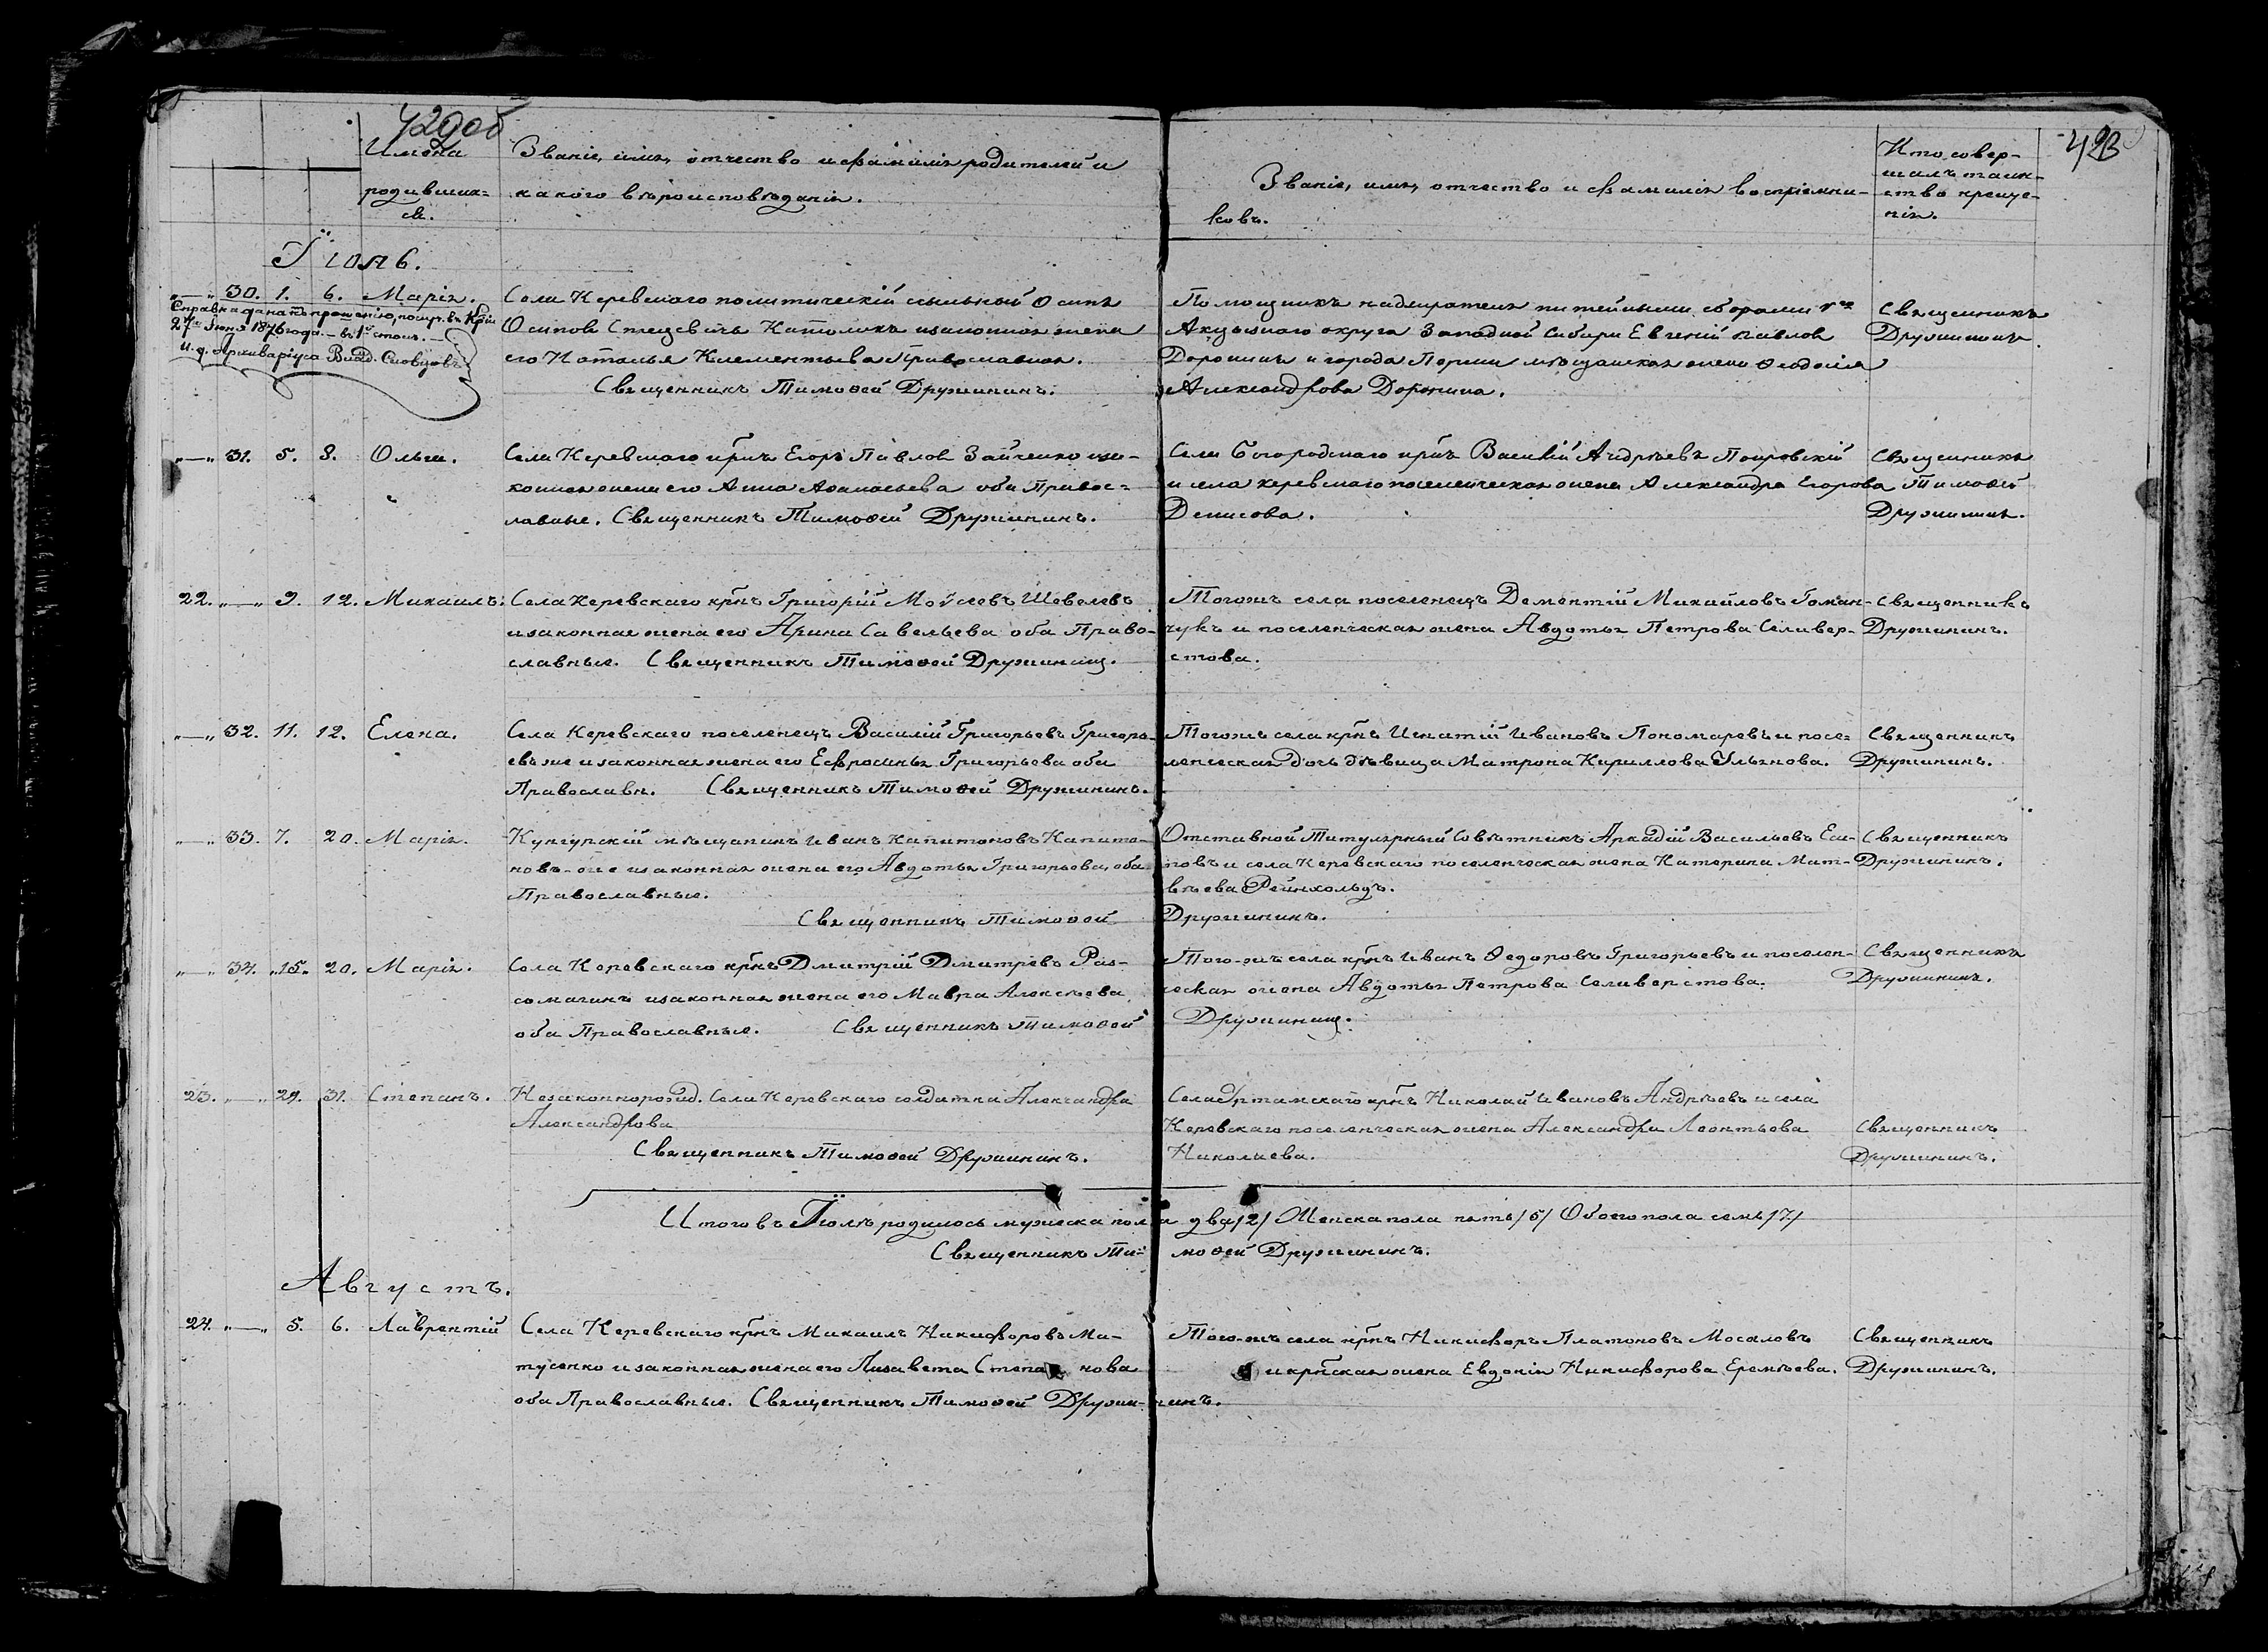 429об
423
Имена родившихся.
Званіе, имя, отчество и фамилія родителей и
какого вѣроисповѣданія.
Званіе, имя, отчество и фамилія воспріемни-
ковъ.
Кто совер-
шалъ таин-
ство креще-
нія.
Іюль.
"—" 30. 1. 6. Марія.
Справка дана по прошенію,
27го Іюня 1876 года. – въ 1й столъ. –
И. д. Архиваріуса Влад. Словцовъ
Села Керевскаго политическій ссыльный Осипъ
Осиповъ Католикъ и законная жена
его Наталья Клементьева Православная.
Священникъ Тимоѳей Дружининъ.
Помощникъ надзирателя питейными сборами 1го
Акцызнаго округа Западной Сибири Евгеній Павловъ
Доронинъ и города Перми мѣщанская жена Ѳеодосія
Александрова Доронина.
Священникъ
Дружининъ.
"—" 31. 5. 8. Ольга.
Села Керевскаго крнъ Егоръ Павловъ Зайченко и за-
конная жена его Анна Аѳанасьева оба Правос-
лавные. Священникъ Тимоѳей Дружининъ.
Села Богородскаго крнъ Василій Андреевъ Покровскій
и села Керевскаго поселенческая жена Александра Егорова
Денисова.
Священникъ
Тимоѳей
Дружининъ.
22. "—" 9. 12. Михаилъ.
Села Керевскаго крнъ Григорій Моѵсеевъ Шевелевъ
и законная жена его Арина Савельева оба Право-
славные. Священникъ Тимоѳей Дружининъ.
Тогожъ села поселенецъ Дементій Михайловъ Гоман-
чукъ и поселенческая жена Авдотья Петрова Селивер-
стова.
Священникъ
Дружининъ.
"—" 32. 11. 12. Елена.
Села Керевскаго поселенецъ Василій Григорьевъ Григорь-
евъ же и законная жена его Ефросинья Григорьева оба
Православн. Священникъ Тимоѳей Дружининъ.
Тогожъ села крнъ Игнатій Ивановъ Пономаревъ и посе-
ленческая дочь дѣвица Матрона Кириллова Ульянова.
Священникъ
Дружининъ.
"—" 33. 7. 20. Марія.
Кунгурскій мѣщанинъ Иванъ Капитоновъ Капито-
новъ-же и законная жена его Авдотья Григорьева, оба
Православные.
Священникъ Тимоѳей Дружининъ.
Отставной Титулярный Совѣтникъ Аркадій Васильевъ Еси-
повъ и села Керевскаго поселенческая жена Катерина Мат-
вѣева Рейнхольдъ.
Священникъ
Дружининъ.
"—" 34. "15. 20. Марія.
Села Керевскаго крнъ Дмитрій Дмитревъ Рас-
сомагинъ и законная жена его Мавра Алексѣева
оба Православные. Священникъ Тимоѳей Дружининъ.
Того-жъ села крнъ Иванъ Ѳедоровъ Григорьевъ и поселен-
ческая жена Авдотья Петрова Селиверстова.
Священникъ
Дружининъ.
23. "—" 29. 31. Степанъ.
Незаконнорожд. Села Керевскаго солдатка Александра
Александрова
Священникъ Тимоѳей Дружининъ.
Села Уртамскаго крнъ Николай Ивановъ Андрѣевъ и села
Керевскаго поселенческая жена Александра Леонтьева
Николаева.
Священникъ
Дружининъ.
Итого въ Іюлѣ родилось мужеска пола два /2/ Женска пола пять /5/ Обоего пола семь /7/
Священникъ Тимоѳей Дружининъ.
Августъ.
24. "—" 5. 6. Лаврентій
Села Керевскаго крнъ Михаилъ Никифоровъ Ма-
тусенко и законная жена его Лизавета Степанова
оба Православные. Священникъ Тимоѳей Дружининъ.
Того-жъ села крнъ Никифоръ Платоновъ Мосаловъ
и крнская жена Евдокія Никифорова Еремѣева.
Священникъ
Дружининъ.